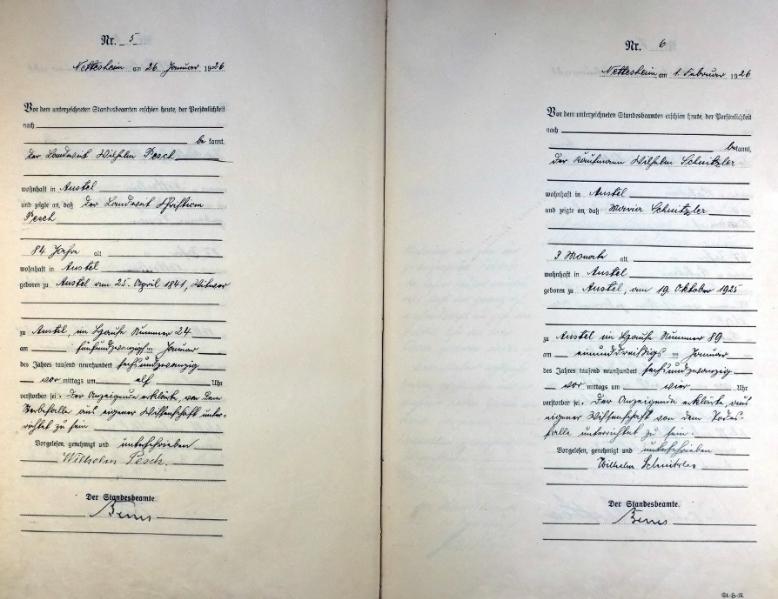 Nr. 5
Nettesheim am 26. Januar 1926
Vor dem unterzeichneten Standesbeamten erschien heute, der Persönlichkeit
nach
be kannt,
der Landwirt Wilhelm Pesch
wohnhaft in Anstel
und zeigte an, daß der Landwirt Christian
Pesch
84 Jahre alt
wohnhaft in Anstel
geboren zu Anstel am 25. April 1841, Witwer
zu Anstel, im Hause Nummer 24
am fünfundzwanzigsten Januar
des Jahres tausend neunhundert sechsundzwanzig
vor mittags um elf Uhr
verstorben sei. Der Anzeigende erklärte, von dem
Sterbefalle aus eigener Wissenschaft unter-
richtet zu sein
Vorgelesen, genehmigt und unterschrieben
Wilhelm Pesch.
Der Standesbeamte.
Nr. 6
Nettesheim am 1. Februar 1926
Vor dem unterzeichneten Standesbeamten erschien heute, der Persönlichkeit
nach
bekannt,
der Kaufmann Wilhelm Schnitzler
wohnhaft in Anstel
und zeigte an, daß Maria Schnitzler
3 Monate alt
wohnhaft in Anstel
geboren zu Anstel, am 19. Oktober 1925
zu Anstel im Hause Nummer 89
am einunddreißigsten Januar
des Jahres tausend neunhundert sechsundzwanzig
vor mittags um vier Uhr
verstorben sei. Der Anzeigende erklärte, aus
eigener Wissenschaft von dem Todes-
falle unterrichtet zu sein.
Vorgelesen, genehmigt und unterschrieben
Wilhelm Schnitzler
Der Standesbeamte.